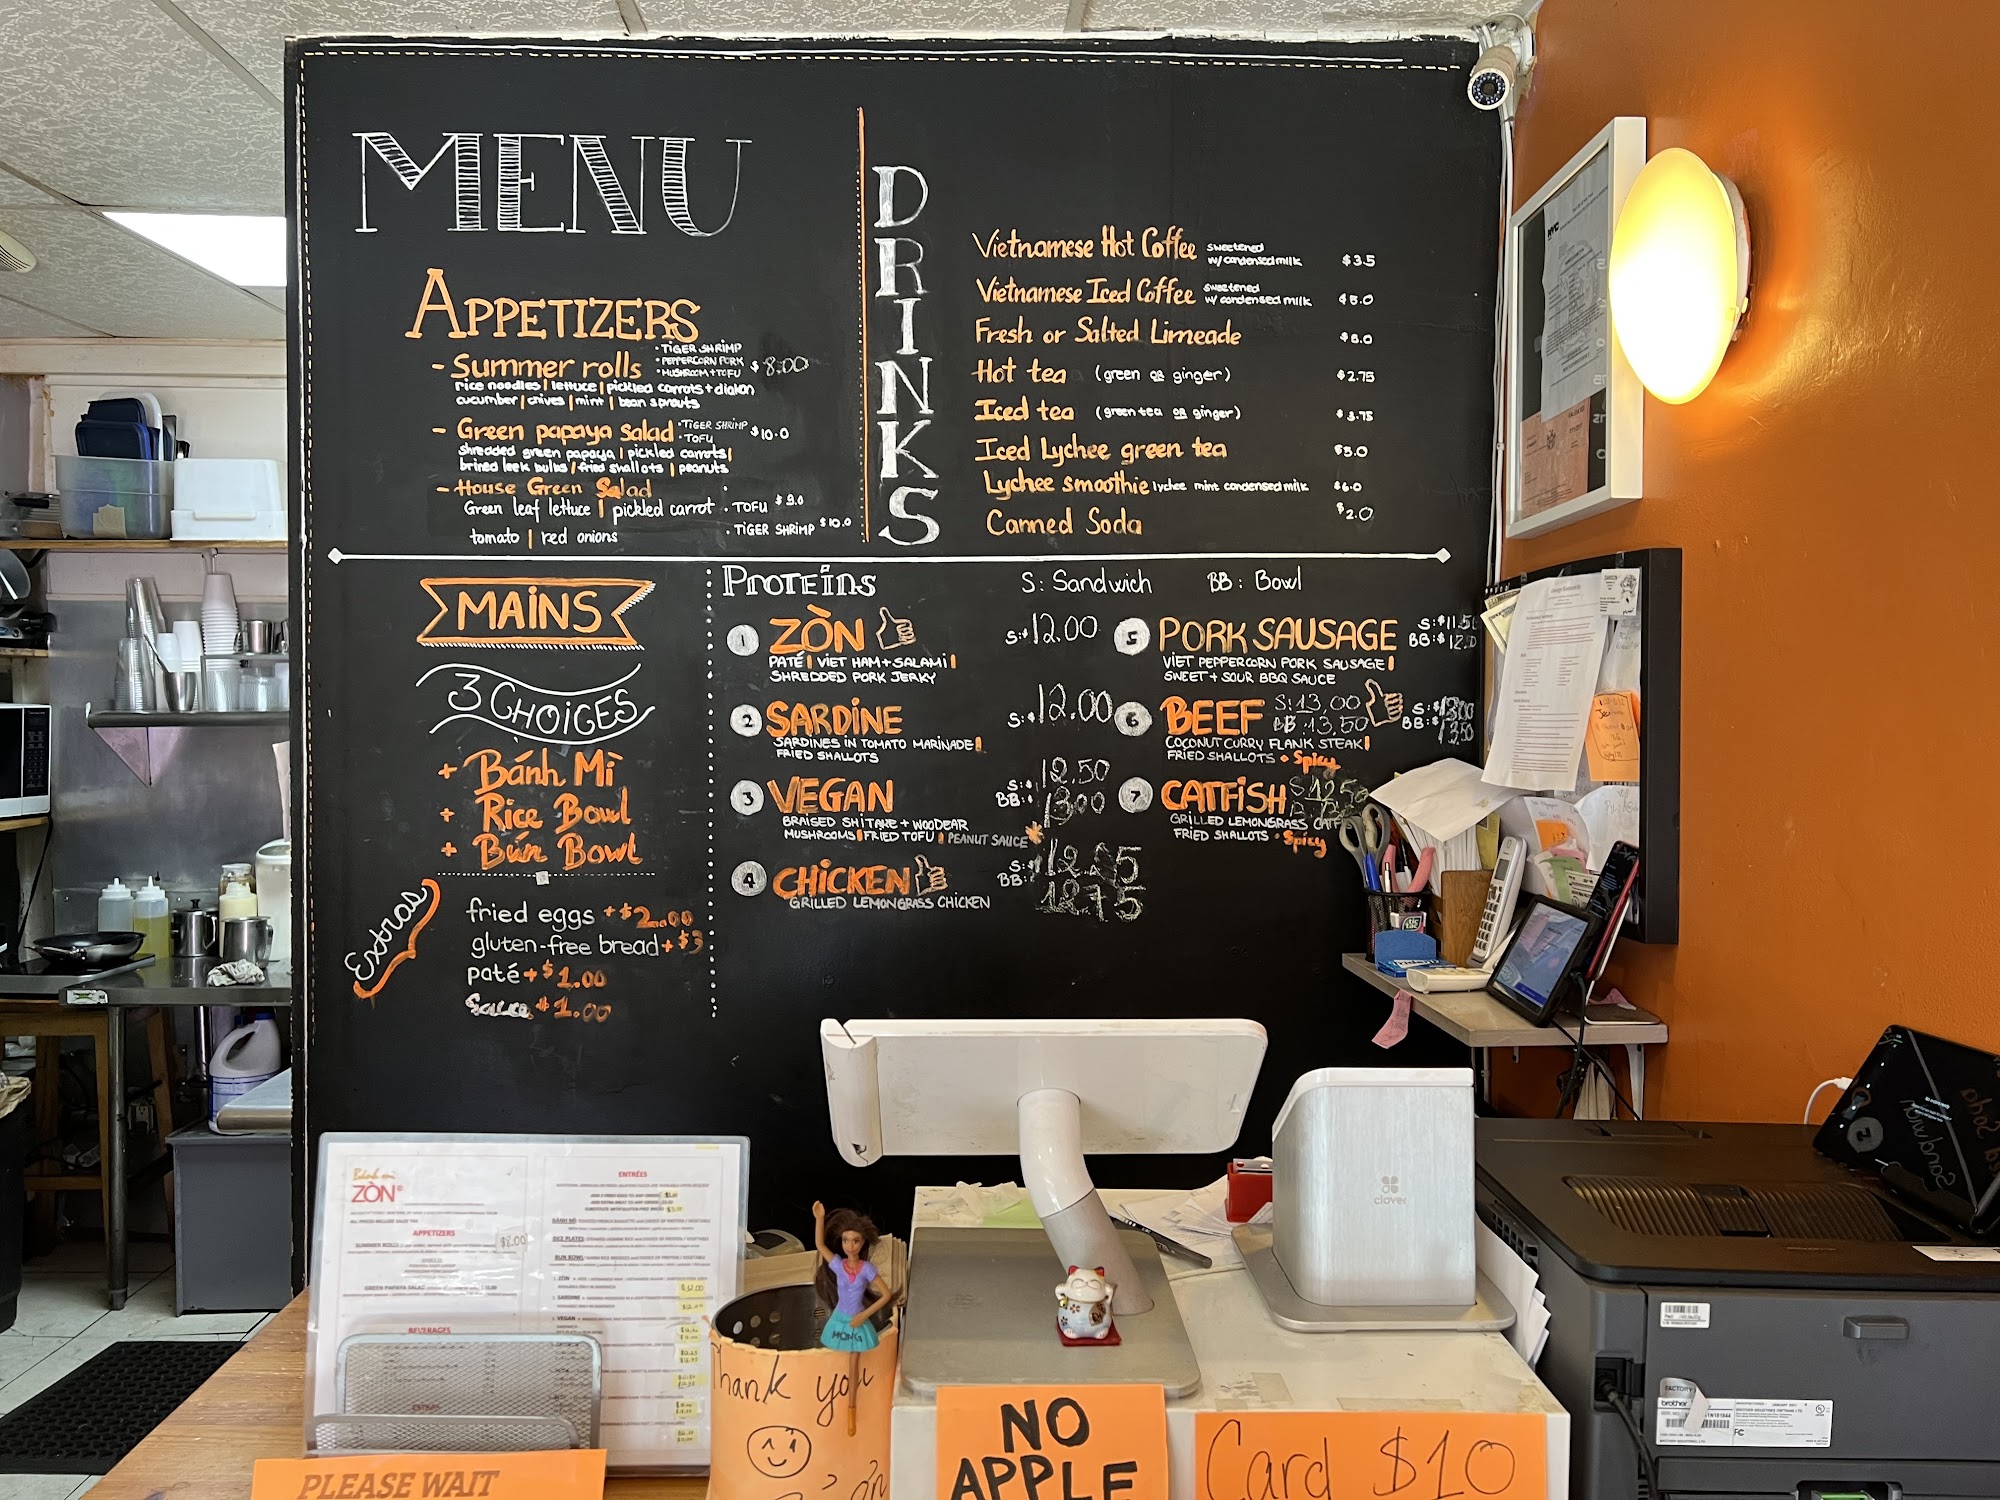 MENU
APPETIZERS
- Summer rolls • TIGER SHRIMP • PEPPERCORN PORK • MUSHROOM + TOFU $8.00
rice noodles | lettuce | pickled carrots + diakon
cucumber | chives | mint | bean sprouts
- Green papaya salad • TIGER SHRIMP • TOFU $10.0
shredded green papaya | pickled carrots |
brined leek bulbs | fried shallots | peanuts
- House Green Salad
Green leaf lettuce | pickled carrot • TOFU $9.0
tomato | red onions • TIGER SHRIMP $10.0
DRINKS
Vietnamese Hot Coffee sweetened w/ condensed milk $3.5
Vietnamese Iced Coffee sweetened w/ condensed milk $5.0
Fresh or Salted Limeade $5.0
Hot tea (green or ginger) $2.75
Iced tea (green tea or ginger) $3.75
Iced Lychee green tea $5.0
Lychee smoothie lychee mint condensed milk $6.0
Canned Soda $2.0
MAINS
3 CHOICES
+ Bánh Mì
+ Rice Bowl
+ Bún Bowl
Extras
fried eggs + $2.00
gluten-free bread + $3
paté + $1.00
Sauce + $1.00
PROTEINS S: Sandwich BB: Bowl
1 ZÒN S:$12.00
PATÉ | VIET HAM + SALAMI |
SHREDDED PORK JERKY
2 SARDINE S:$12.00
SARDINES IN TOMATO MARINADE |
FRIED SHALLOTS
3 VEGAN S:$12.50
BB:$13.00
BRAISED SHITAKE + WOODEAR
MUSHROOMS | FRIED TOFU | PEANUT SAUCE *
4 CHICKEN S:$12.25
BB:$12.75
GRILLED LEMONGRASS CHICKEN
5 PORK SAUSAGE S:$11.50
BB:$12.50
VIET PEPPERCORN PORK SAUSAGE |
SWEET + SOUR BBQ SAUCE
6 BEEF S:13,00 S:$13.00
BB:13,50 BB:$13.50
COCONUT CURRY FLANK STEAK |
FRIED SHALLOTS • Spicy
7 CATFISH S:12.50
GRILLED LEMONGRASS
FRIED SHALLOTS • Spicy
Bánh mì
ZÒN
APPETIZERS
$8.00
BEVERAGES
ENTRÉES
$12.00
Thank you
HONG
clover
brother
PLEASE WAIT
NO
APPLE
Card $10